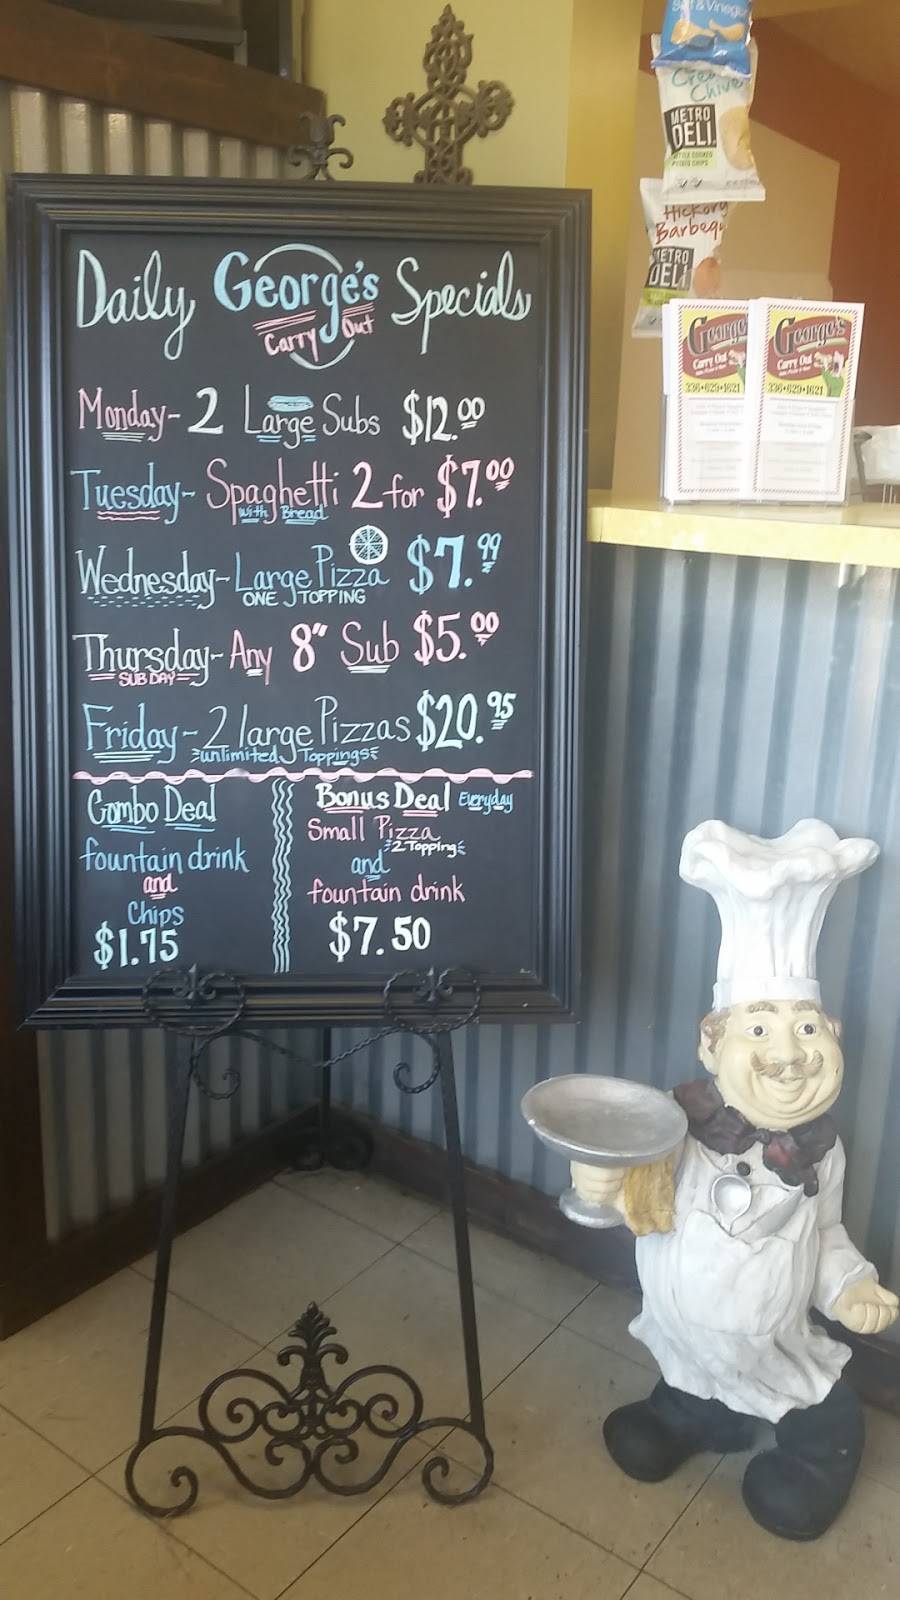 Salt & Vinegar
Chive
METRO
DELI
KETTLE COOKED
POTATO CHIPS
Hickory
METRO
DELI
Daily George's Specials
Carry Out
Monday - 2 Large Subs $12.00
Tuesday - Spaghetti 2 for $7.00
with Bread
Wednesday - Large Pizza $7.99
ONE TOPPING
Thursday - Any 8" Sub $5.00
SUB DAY
Friday - 2 large Pizzas $20.95
unlimited Toppings
Combo Deal
fountain drink
and
Chips
$1.75
Bonus Deal Everyday
Small Pizza
2 Topping
and
fountain drink
$7.50
George's
Carry Out
336•629•1621
George's
Carry Out
336•629•1621